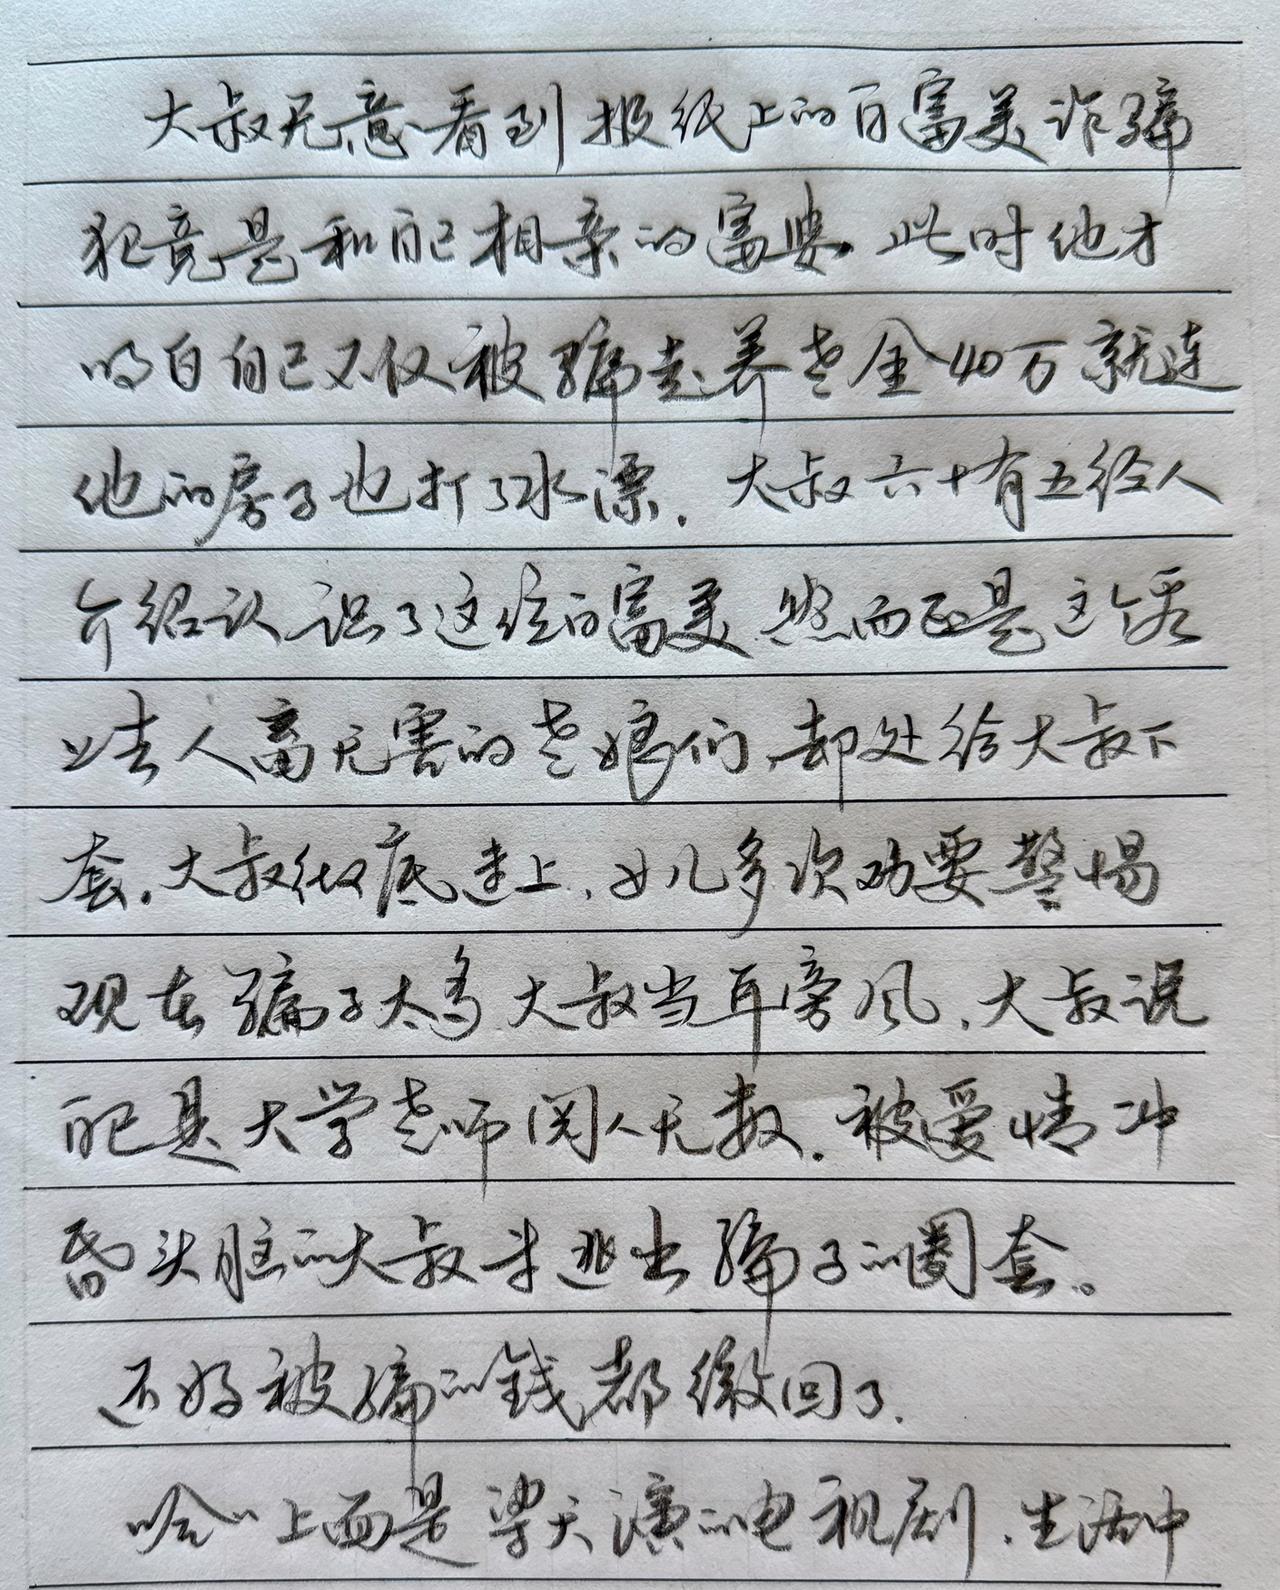 大叔无意看到报纸上的白富美诈骗
犯竟是和自己相亲的富婆。此时他才
明白自己不仅被骗走养老金40万就连
他的房子也打了水漂。大叔六十有五经人
介绍认识了这位白富美,然而正是这个看
上去人畜无害的老娘们,却处给大叔下
套。大叔彻底迷上,女儿多次劝要警惕
现在骗子太多,大叔当耳旁风,大叔说
自己是大学老师阅人无数。被爱情冲
昏头脑的大叔未逃出骗子的圈套。
还好被骗的钱都缴回了.
哈哈上面是梁天演的电视剧,生活中